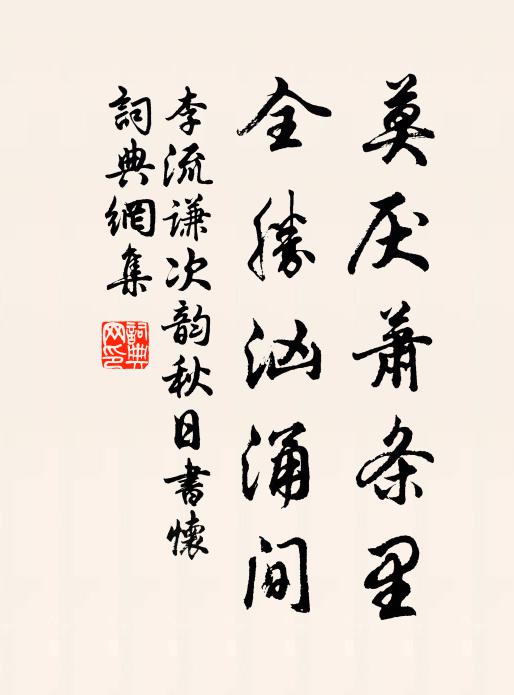 莫厌萧条里
全胜汹涌间
李流谦次韵秋日书怀
词典网集
词典网印